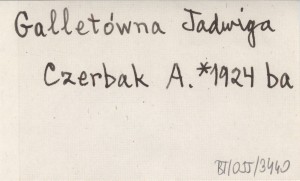 Galletówna Jadwiga
Czerbak A. *1924 ba
BT/055/3440